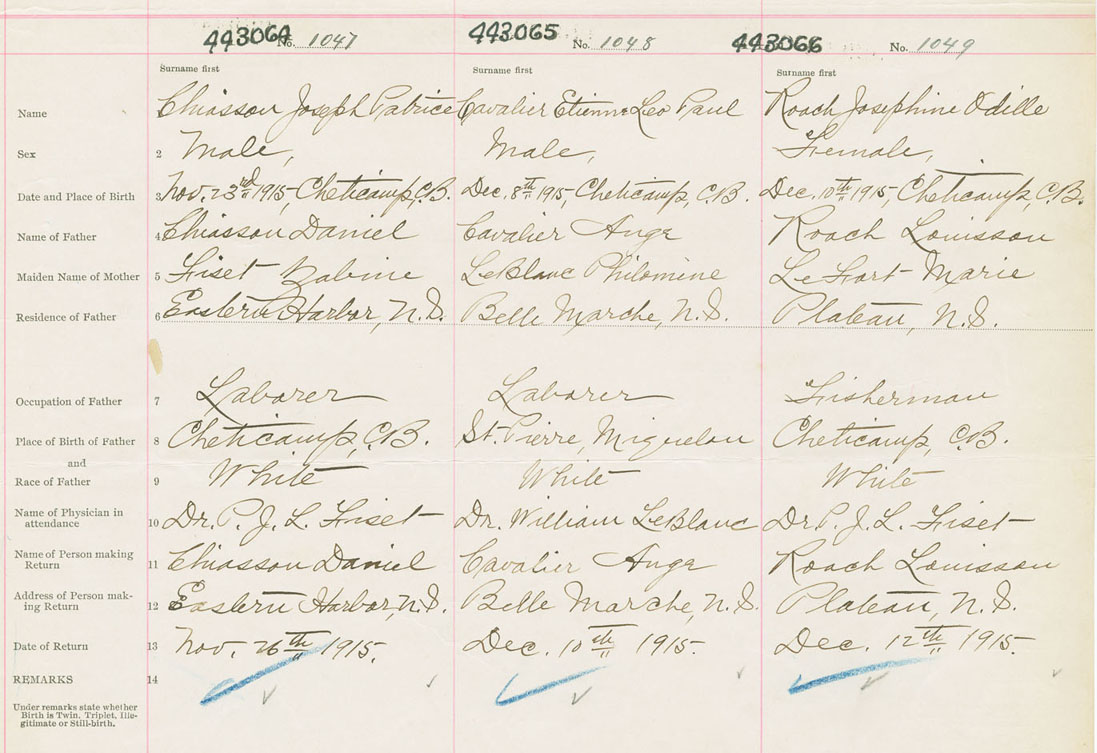 443064 No. 1047 443065 No. 1048 443066 No. 1049
Surname first Surname first Surname first
Name Chiasson Joseph Patrice Cavalier Etienne Leo Paul Roach Josephine Odille
Sex 2 Male, Male, Female,
Date and Place of Birth 3 Nov. 23rd 1915, Cheticamp, C.B. Dec. 8th 1915, Cheticamp, C.B. Dec. 10th 1915, Cheticamp, C.B.
Name of Father 4 Chiasson Daniel Cavalier Ange Roach Louisson
Maiden Name of Mother 5 Fiset Zabine LeBlanc Philomine Le Fort Marie
Residence of Father 6 Eastern Harbor, N.S. Belle Marche, N.S. Plateau, N.S.
Occupation of Father 7 Laborer Laborer Fisherman
Place of Birth of Father 8 Cheticamp, C.B. St. Pierre, Miquelon Cheticamp, C.B.
and
Race of Father 9 White White White
Name of Physician in
attendance 10 Dr. P. J. L. Fiset Dr. William LeBlanc Dr P. J. L. Fiset
Name of Person making
Return 11 Chiasson Daniel Cavalier Ange Roach Louisson
Address of Person mak-
ing Return 12 Eastern Harbor, N.S. Belle Marche, N.S. Plateau, N.S.
Date of Return 13 Nov. 26th 1915. Dec. 10th 1915. Dec. 12th 1915.
REMARKS 14
Under remarks state whether
Birth is Twin, Triplet, Ille-
gitimate or Still-birth.